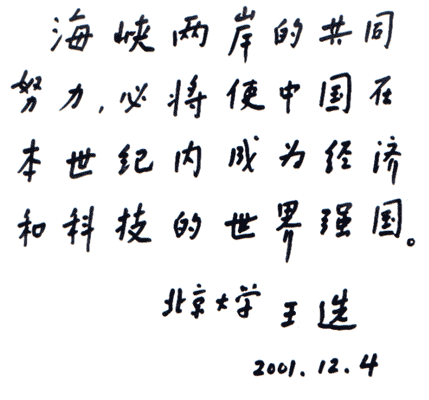 海峡两岸的共同
努力,必将使中国在
本世纪内成为经济
和科技的世界强国。
北京大学 王选
2001.12.4